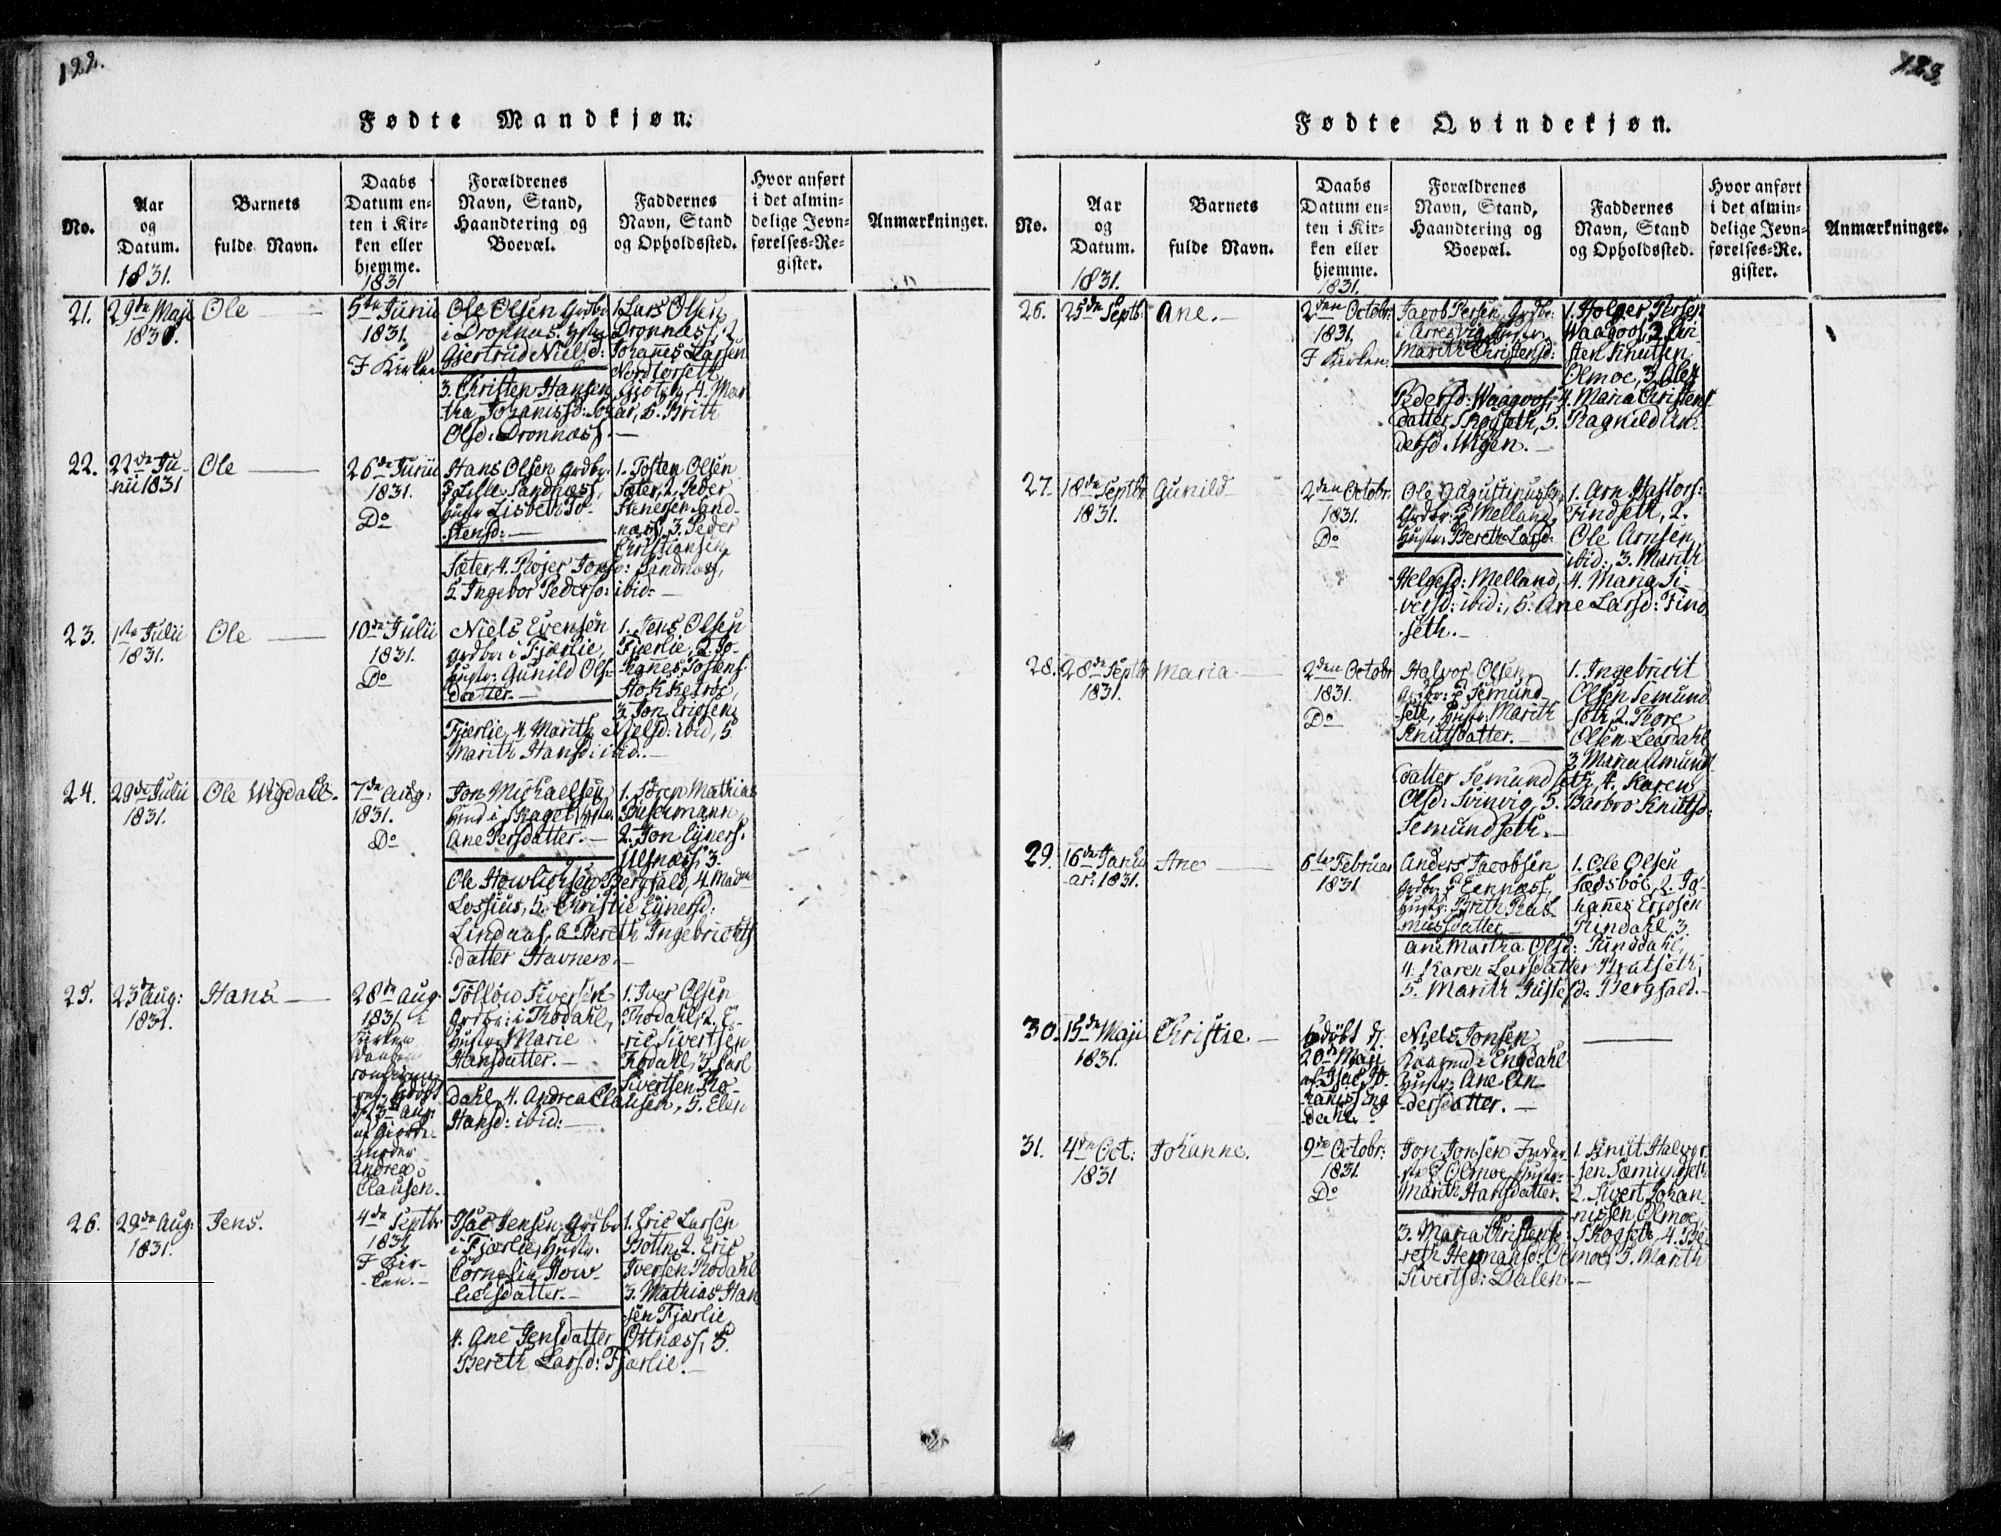 122.
Fødte Mandkjøn.
No.
Aar
og
Datum.
1831.
Barnets
fulde Navn.
Daabs
Datum en-
ten i Kir-
ken eller
hjemme.
1831
Forældrenes
Navn, Stand,
Haandtering og
Boepæl.
Faddernes
Navn, Stand
og Opholdssted.
Hvor anført
i det almin-
delige Jevn-
førelses-Re-
gister.
Anmærkninger.
21.
29de Maji
1831.
Ole
5te Junii
1831.
I Kirken
Ole Olsen Grdbr
i Dronnæs. Hstr
Gjertrud Nielsd:
1. Lars Olsen
Dronnæss, 2
Johannes Larsen
Nordlorseth,
3. Christen Hansen Gjøten, 4. Mar
tha Johanisd: ar, 5. Brith
Olsd: Dronnæss.—
22.
22de Ju-
nii 1831
Ole
26de Junii
1831.
Do
Hans Olsen Grdbr.
i Lille Sandnæss,
Hustr Lisbeth To-
stensd:—
1. Tosten Olsen
Sæter, 2. Peder
Stenersen Sand-
næss, 3. Peder
Christiansen
Sæter, 4. Røjer Jonsd: Sandnæss,
5. Ingebor Pedersd: ibid:—
23.
1ste Julii
1831.
Ole
10de Julii
1831.
Do
Niels Evensen
Grdbr i Fjærlie,
Hustr: Gunild Ols-
datter.—
1. Jens Olsen
Fjærlie, 2 Jo-
hanes Tostens:
Hokkelroe,
3. Jon Ericsen
Fjærlie, 4. Marith Nielsd: ibid, 5
Marith Hansd: ibid.—
24.
28de Julii
1831.
Ole Wigdahl.
7de Aug.
1831.
Do
Jon Michaelsen
i Skaget, Hstr.
Ane Persdatter.—
1. Søren Mathias
Busermann,
2. Jon Ejners.
Ulsnæss, 3.
Ole Howlichsen Bergsald, 4. Mad
Lossius, 5. Christie Ejnersd:
Lindaas, 6. Bereth Ingebrichts
datter Havnero.—
25.
23d Aug:
1831.
Hans
28de Aug.
1831. i
Kirken
Daaben
døbt
d. 3die Aug
af Giorde-
moder
Andrea
Clausen.
Tolløw Iversen
Grdbr: i Thodahl,
Hustr Marie
Hansdatter.—
1. Iver Olsen
Thodahl, 2. E-
ric Sivertsen
Thodahl, 3. Carl
Sivertsen Tho-
dahl, 4. Andrea Clausen, 5. Elen
Hansd: ibid:—
26.
29de Aug:
1831.
Jens.
4de Septbr
1831
I Kir-
-ken.—
Isac Jensen, Grdbr
i Fjærlie, Hustr.
Cornelia How-
lichsdatter.—
1. Eric Larsen
Bottn, 2. Eric
Iversen Thodahl
3. Mathias Han
sen Fjærlie
4. Ane Jensdatter Ottnæss, 5.
Bereth Larsd: Fjærlie.—
123.
Fødte Qvindekjøn.
No.
Aar
og
Datum.
1831.
Barnets
fulde Navn.
Daabs
Datum en-
ten i Kir-
ken eller
hjemme.
1831.
Forældrenes
Navn, Stand,
Haandtering og
Boepæl.
Faddernes
Navn, Stand
og Opholdssted.
Hvor anført
i det almin-
delige Jevn-
førelses-Re-
gister.
Anmærkninger.
26.
25de Septb.
Ane.
2den Octobr.
1831.
I Kirken.
Jacob Persen, Grdbr.
i Arresvig, Hustr.
Marith Christensd:
1. Holger Persen
Waagoos, 2 Cri-
sten Knutsen
Olmoe, 3 Olea
Pedersd: Waagoos, 4. Maria Christens
datter Skogseth, 5. Ragnild An-
dersd: Wigen.—
27.
18de Septbr
1831.
Gunild
2den Octobr.
1831.
Do
Ole Augustinussen
Grdbr: i Melland,
Hustr: Bereth Larsd:
1. Arn Hallors:
Findseth, 2.
Ole Arnsen,
ibid:, 3. Marith
Helgesd: Melland, 4. Maria Si-
versd: ibid:, 5. Ane Larsd: Find
seth.—
28.
28de Septbr
1831.
Maria
2den Octobr
1831.
Do
Halvor Olsen,
Grdbr: i Semund-
seth, Hustr: Marith
Knutsdatter.—
1. Ingebricht
Olsen Semund
seth, 2. Thore
Olsen Leerdahl
3 Maria Amunds
datter Semundseth, 4. Karen
Olsd: Svinvig, 5. Barbro Knutsd:
Semundseth.—
29.
16de Janu
ar: 1831.
Ane
6te Februar
1831
Anders Jacobsen
Grdbr: i Eennæss
Hustr: Brith Ras-
musdatter.—
1. Ole Olsen
Sædsbøe, 2. Jo-
hanes Ericsen
Rindahl, 3.
Ane Martha Olsd: Sunddahl,
4. Karen Larsdatter Bratseth,
5. Marith Justesd: Bergsald.—
30.
15de Maji
1831.
Christie
døbt d.
20de Maji
af Isac Jo-
hanissing
dahl.
Niels Jonsen
Huusmd i Engdahl
Hustr: Ane An-
dersdatter.—
31.
4de Oct:
1831
Johanne.
9de Octobr:
1831
Do
Jon Jonsen Inder-
ste i Olmoe, Hustr.
Marith Hansdatter.
1. Knut Halvor
sen Sæmunseth
2. Sivert Johan-
nissen Olmoe,
3. Maria Christensd: Skogseth, 4. Be-
reth Hermansd: Olmoe, 5. Marith
Sivertsd: Dalen.—